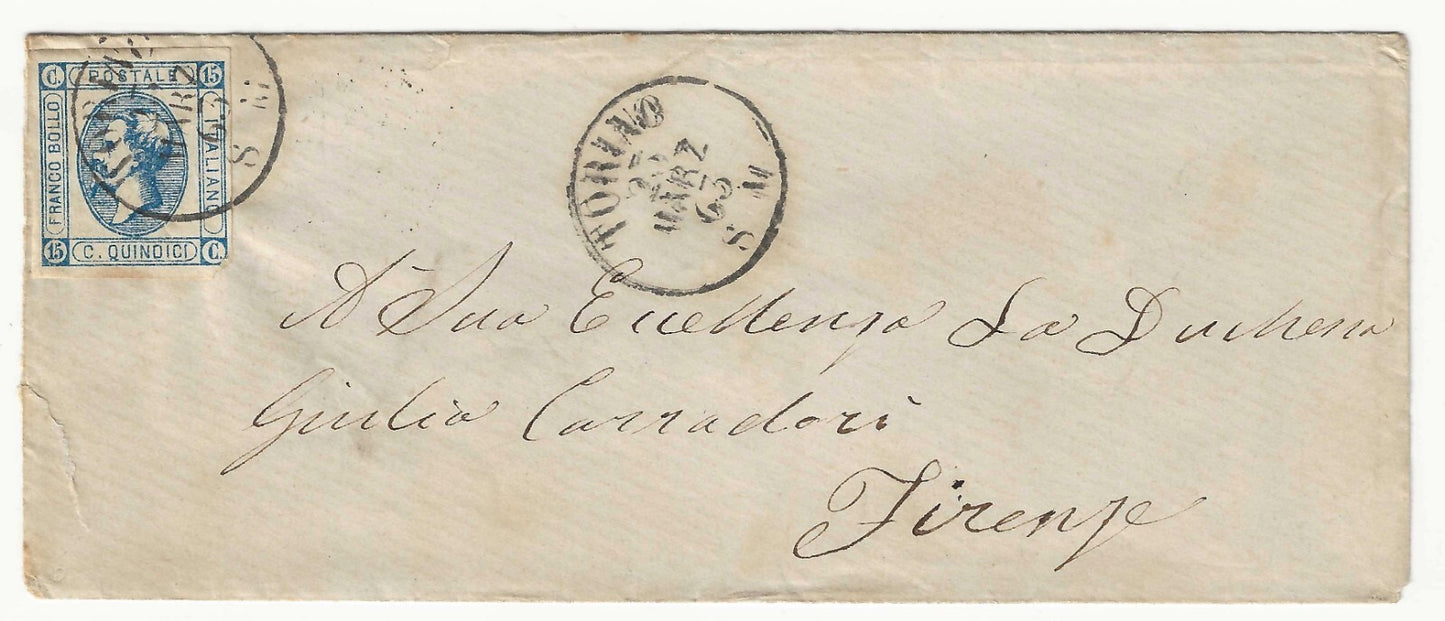 C. POSTALE 15
FRANCO BOLLO
ITALIANO
15 C. QUINDICI C.
TORINO
25
MARZ
63
S M
A Sua Eccellenza La Duchessa
Giulia Corradori
Firenze